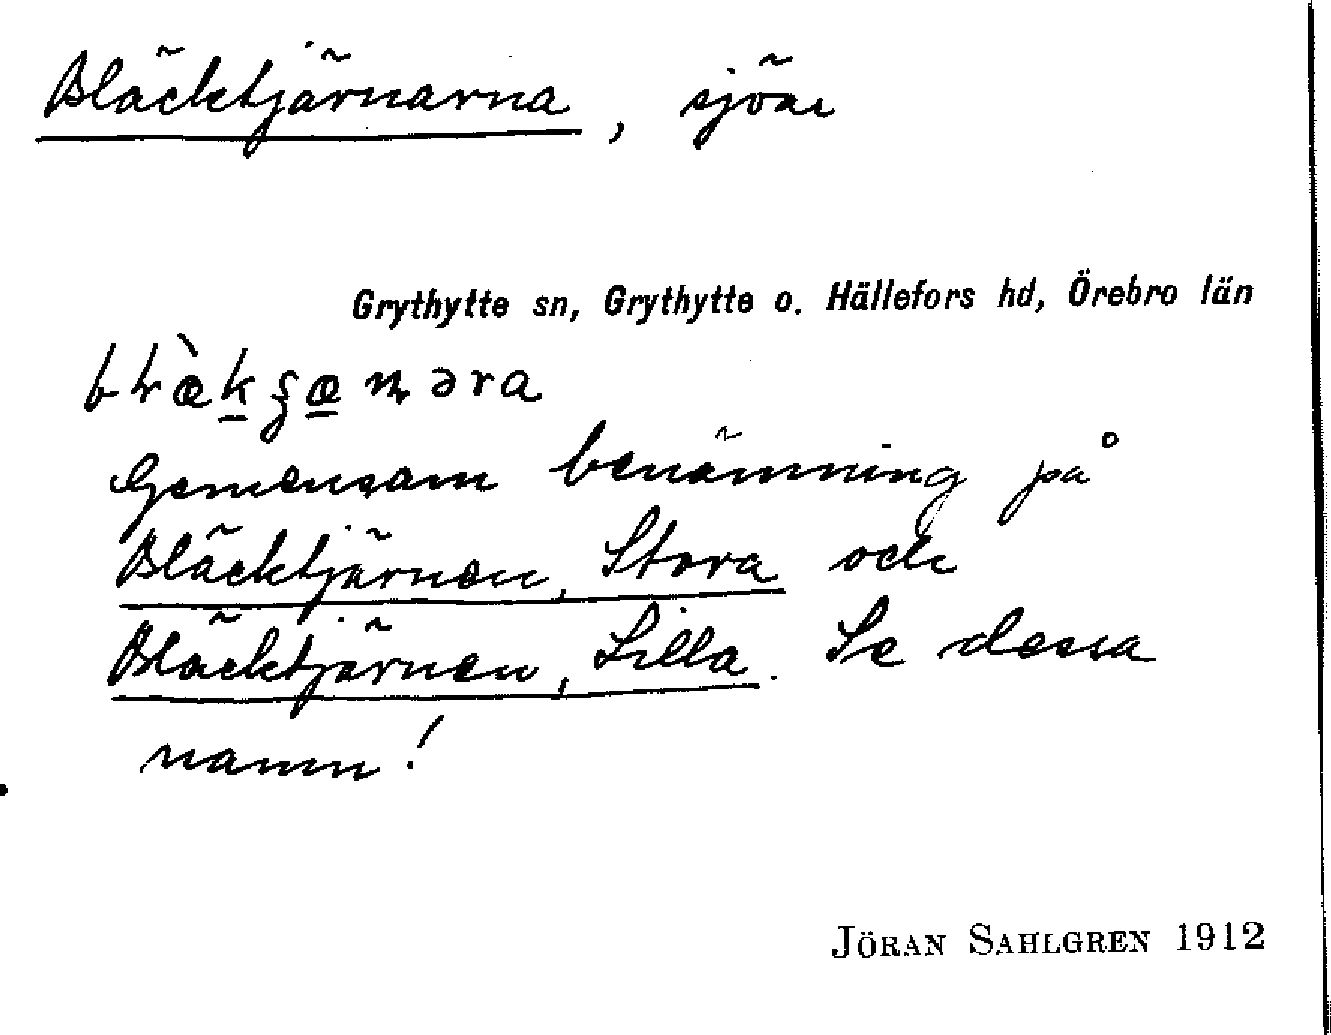 Bläcktjärnarna, sjöar
Grythytte sn, Grythytte o. Hällefors hd, Örebro län
Gemensam benämning på
Bläcktjärnen, Stora och
Bläcktjärnen, Lilla. Se dessa
namn!
JÖRAN SAHLGREN 1912